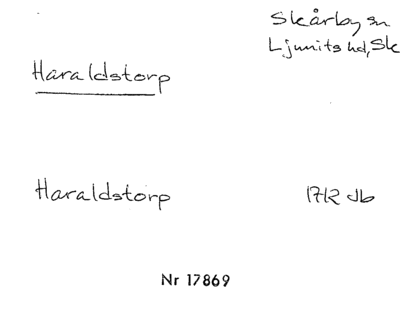 Skårby sn
Ljunits hd, Sk
Haraldstorp
Haraldstorp 1712 Jb
Nr 17869